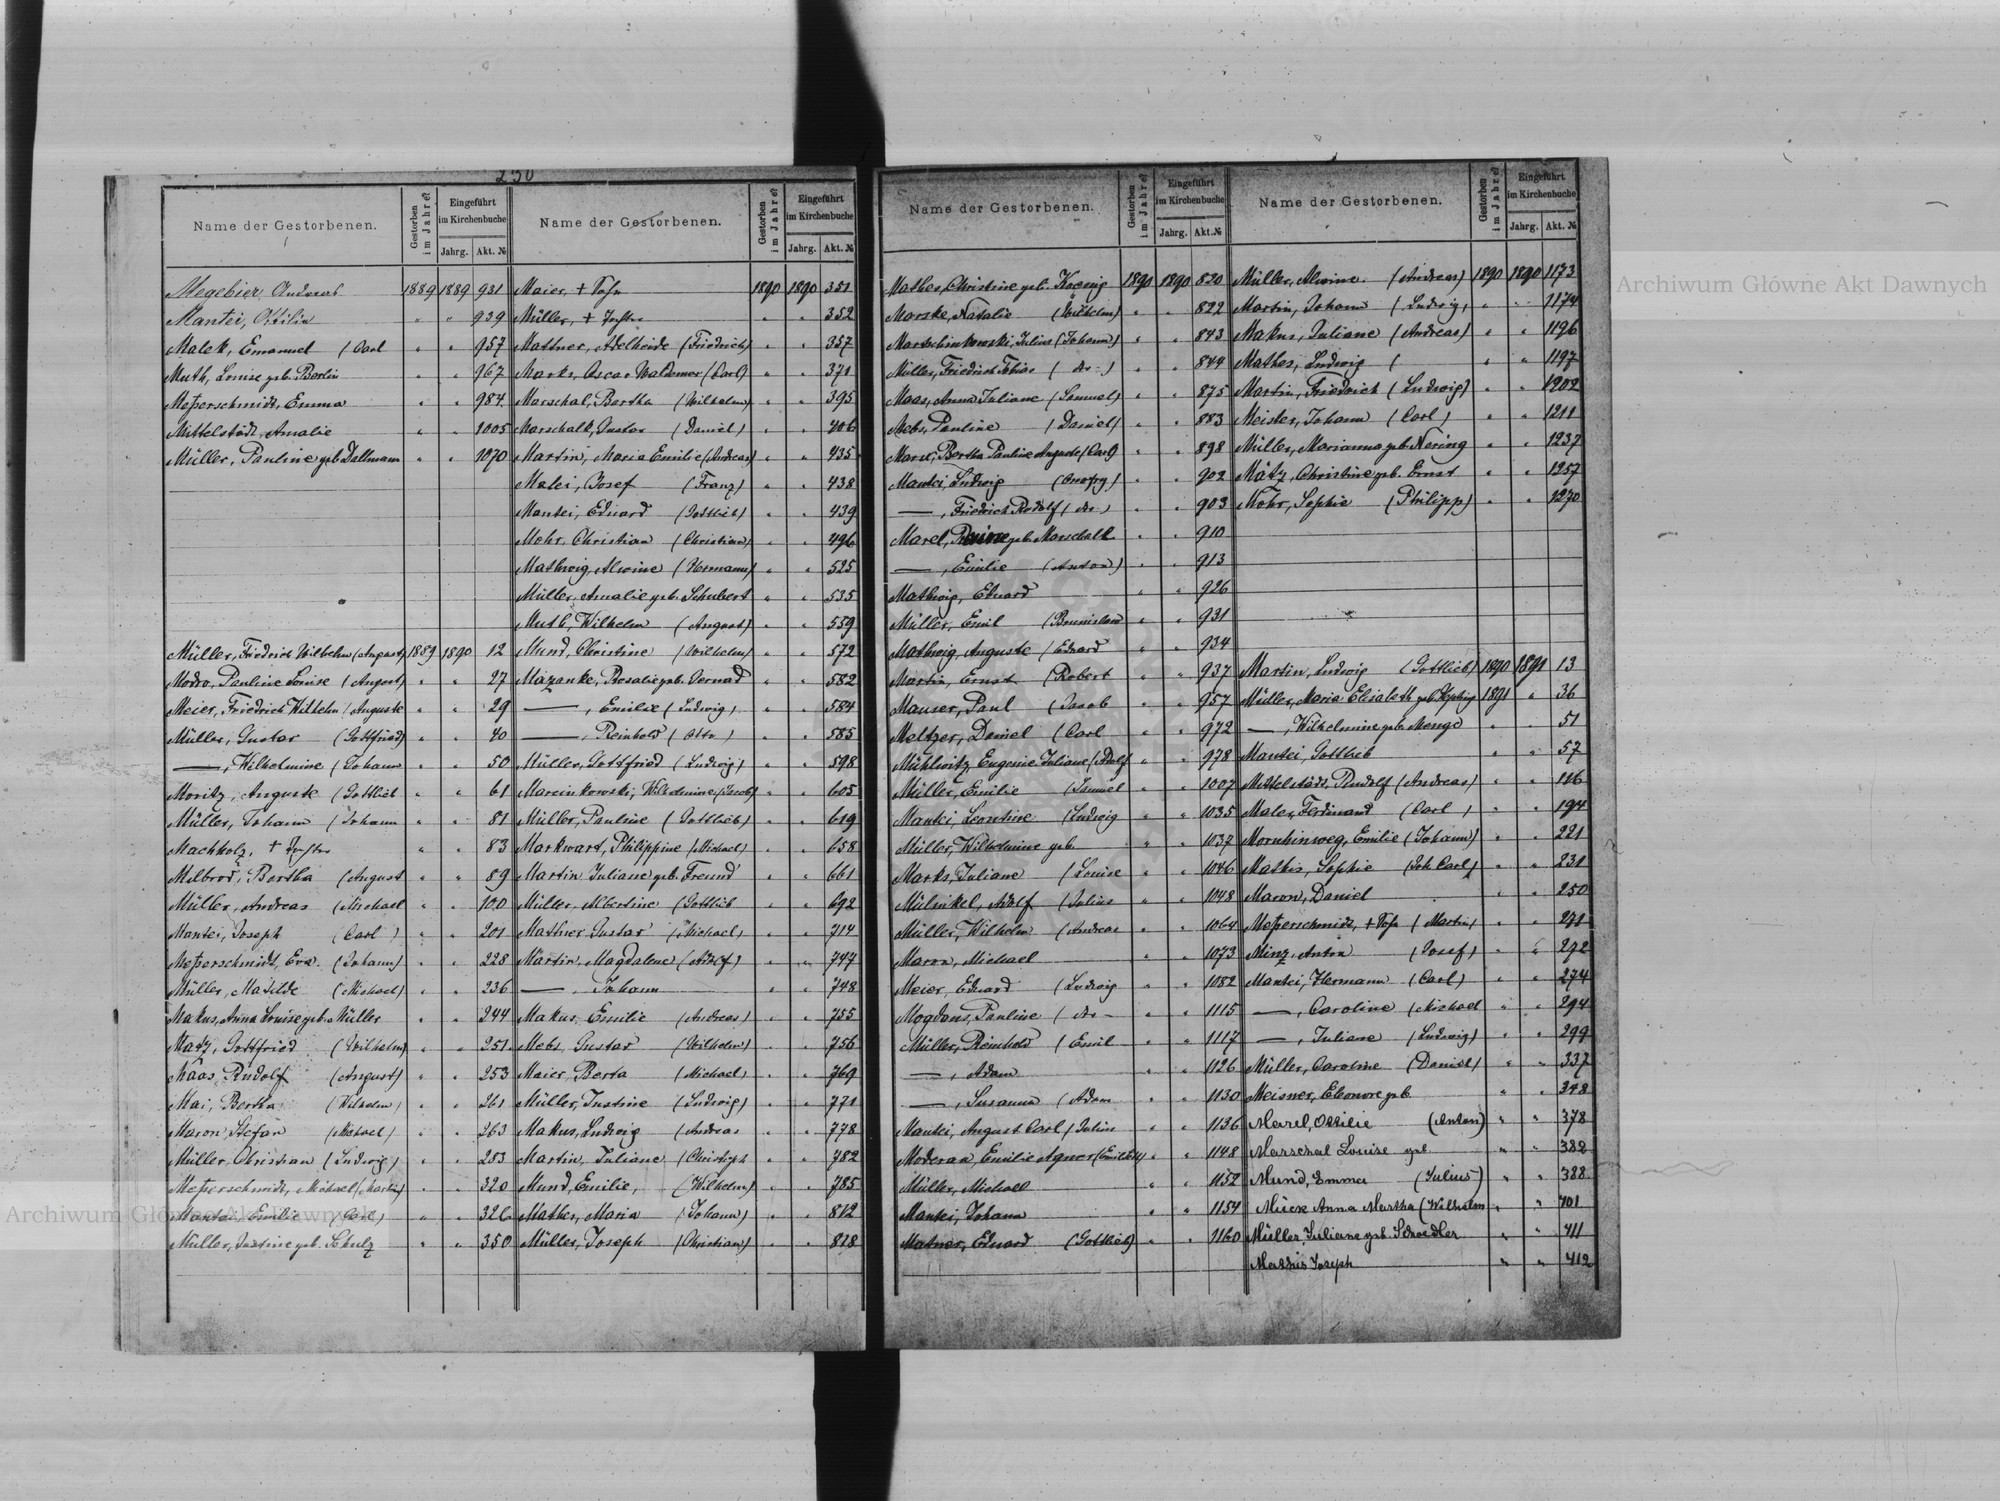 250
Name der Gestorbenen. Gestorben im Jahre? Eingeführt im Kirchenbuche Jahrg. Akt. №
Megebier, Andreas 1889 1889 931
Mantei, Ottilie " " 939
Malek, Emanuel (Carl " " 957
Muth, Louise geb. Berlin " " 967
Messerschmidt, Emma " " 984
Mittelstädt, Amalie " " 1005
Müller, Pauline geb. Dallmann " " 1070
Müller, Friedrich Wilhelm (August) 1889 1890 12
Modro, Pauline Louise (August) " " 27
Meier, Friedrich Wilhelm (Auguste " " 29
Müller, Gustav (Gottfried) " " 40
—, Wilhelmine (Johann " " 50
Moritz, Auguste (Gottlieb " " 61
Müller, Johann (Johann " " 81
Machholz, + Tochter " " 83
Milbrod, Bertha (August " " 89
Müller, Andreas (Michael " " 100
Mantei, Joseph (Carl) " " 201
Messerschmidt, Eva (Johann) " " 228
Müller, Matilde (Michael) " " 236
Makus, Anna Louise geb. Müller " " 244
Matz, Gottfried (Wilhelm) " " 251
Maas, Rudolf (August) " " 253
Mai, Bertha (Wilhelm) " " 261
Maron, Stefan (Michael) " " 263
Müller, Christian (Ludwig) " " 283
Messerschmidt, Michael (Martin) " " 320
Mantei, Emilie (Carl) " " 326
Müller, Justine geb. Schulz " " 350
Name der Gestorbenen. Gestorben im Jahre? Eingeführt im Kirchenbuche Jahrg. Akt. №
Maier, + Sohn 1890 1890 351
Müller, + Tochter " " 352
Mattner, Adelheide (Friedrich) " " 357
Marks, Oscar Waldemar (Carl) " " 371
Marschal, Bertha (Wilhelm) " " 395
Marschalk, Gustav (Daniel) " " 406
Martin, Maria Emilie (Andreas) " " 435
Malei, Josef (Franz) " " 438
Mantei, Eduard (Gottlieb) " " 439
Mohr, Christian (Christian) " " 496
Mathwig, Alwine (Hermann) " " 525
Müller, Amalie geb. Schubert " " 535
Muth, Wilhelm (August) " " 559
Mund, Christine (Wilhelm) " " 572
Mazanke, Rosalie geb. " " 582
—, Emilie (Ludwig) " " 584
—, Reinhold (Otto) " " 585
Müller, Gottfried (Ludwig) " " 598
Marcinkowski, Wilhelmine (Jacob) " " 605
Müller, Pauline (Gottlieb) " " 619
Markwart, Philippine (Michael) " " 658
Martin Juliane geb. Freund " " 661
Müller, Albertine (Gottlieb " " 692
Mathner Gustav (Michael) " " 714
Martin, Magdalene (Adolf) " " 747
—, Johann " " 748
Makus, Emilie (Andreas) " " 755
Mebs, Gustav (Wilhelm) " " 756
Maier Berta (Michael) " " 769
Müller, Justine (Ludwig) " " 771
Makus, Ludwig (Andreas " " 778
Martin, Juliane (Christoph " " 782
Mund, Emilie, (Wilhelm) " " 785
Mathes, Maria (Johann) " " 812
Müller, Joseph (Christian) " " 818
Name der Gestorbenen. Gestorben im Jahre? Eingeführt im Kirchenbuche Jahrg. Akt. №
Mathes, Christine geb. Koenig 1890 1890 820
Marske, Natalie (Wilhelm) " " 822
Martschinkowski, Julius (Johann) " " 843
Müller, Friedrich Tobias ( " " 844
Maas, Anna Juliane (Samuel) " " 875
Mebs, Pauline (Daniel) " " 883
Marx, Bertha Pauline Auguste (Carl) " " 898
Mantei, Ludwig " " 902
—, Friedrich Rudolf " " 903
Marel, geb. Marschalk " " 910
—, Emilie (Anton) " " 913
Mathwig, Eduard " " 926
Müller, Emil (Bronislaw " " 931
Mathwig, Auguste (Eduard " " 934
Martin, Ernst (Robert " " 937
Mauser, Paul (Jacob " " 957
Meltzer, Daniel (Carl " " 972
Mühlwitz, Eugenie Juliane (Adolf) " " 978
Müller, Emilie (Samuel " " 1007
Mantei, Leontine (Ludwig " " 1035
Müller, Wilhelmine geb. " " 1037
Marks, Juliane (Louise " " 1046
Milinkel, Adolf (Julius " " 1048
Müller, Wilhelm (Andreas " " 1064
Maron, Michael " " 1073
Meier, Eduard (Ludwig " " 1082
Mogdans, Pauline ( " " 1115
Müller, Reinhold (Emil " " 1117
—, Adam " " 1126
—, Susanna (Adam " " 1130
Mantei, August Carl (Julius " " 1136
Moderau, Emilie Agnes (Emilie) " " 1148
Müller, Michael " " 1152
Mantei, Johann " " 1154
Matner, Eduard (Gottlieb) " " 1160
Name der Gestorbenen. Gestorben im Jahre? Eingeführt im Kirchenbuche Jahrg. Akt. №
Müller, Alwine (Andreas) 1890 1890 1173
Martin, Johann (Ludwig) " " 1174
Makus, Juliane (Andreas) " " 1196
Mathes, Ludwig ( " " 1197
Martin, Friedrich (Ludwig) " " 1202
Meister, Johann (Carl) " " 1211
Müller, Marianna geb. Nering " " 1237
Mätz, Christine geb. Ernst " " 1257
Mohr, Sophie (Philipp) " " 1270
Martin, Ludwig (Gottlieb) 1890 1891 13
Müller, Maria Elisabeth geb. 1891 " 36
—, Wilhelmine geb. Menge " " 51
Mantei Gottlieb " " 57
Mittelstädt, Rudolf (Andreas) " " 116
Maler, Ferdinand (Carl) " " 194
Mornhinweg, Emilie (Johann) " " 221
Mathis, Sophie (Joh. Carl) " " 231
Maron, Daniel " " 250
Messerschmidt, + Sohn (Martin) " " 271
Minz, Anton (Josef) " " 272
Mantei, Hermann (Carl) " " 274
—, Caroline (Michael " " 294
—, Juliane (Ludwig) " " 299
Müller, Caroline (Daniel) " " 337
Meisner, Eleonore geb. " " 348
Marel, Ottilie (Anton) " " 378
Marschal Louise geb. " " 382
Mund, Emma (Julius) " " 388
Anna Martha (Wilhelm " " 401
Müller, Juliane geb. Schoedler " " 411
Mathis Joseph " " 412
Archiwum Główne Akt Dawnych
Archiwum Główne Akt Dawnych